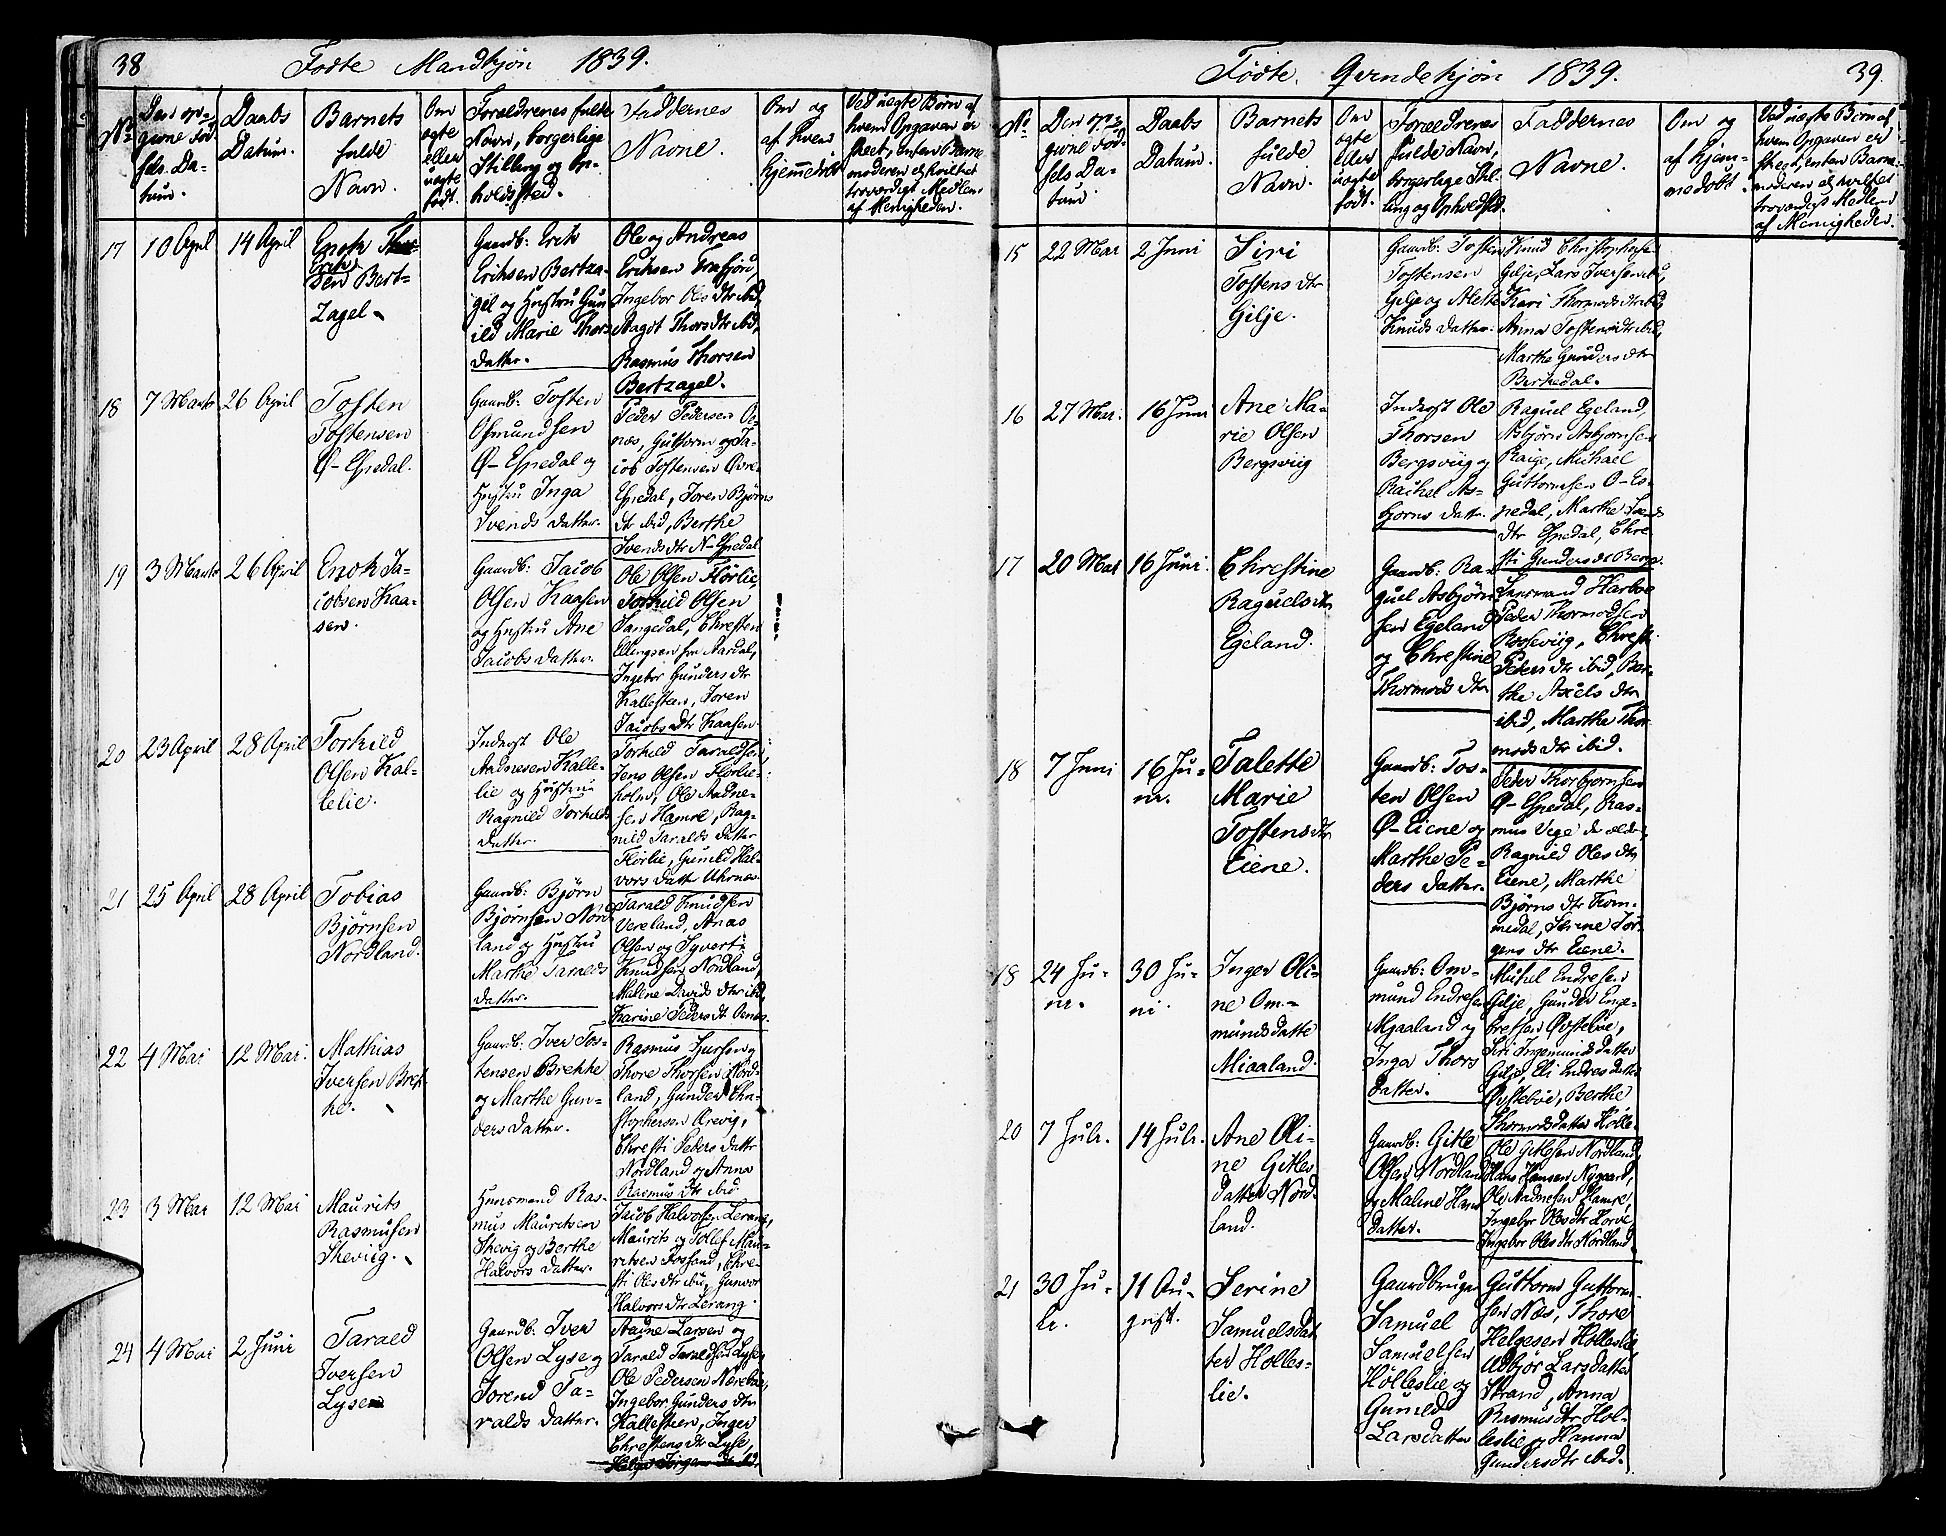 38
Fødte Mandkjøn 1839.
No
Den opgivne Fødsels Datum.
Daabs Datum.
Barnets fulde Navn.
Om ægte eller uægte født.
Forældrenes fulde Navn, borgerlige Stilling og Opholdsted.
Faddernes Navne.
Om og af hvem hjemmedøbt
Ved uægte Børn af hvem Opgaven er skeet, enten Barnemoderen el hvilket troværdigt Medlem af Menigheden.
17
10 April
14 April
Enok
Eriksen Bert-
zagel
Gaardb: Erik
Eriksen Bertza-
gel og Hustru Gun
ild Marie Thors
datter.
Ole og Andreas
Eriksen
Ingebor Ols dtr ibid,
Aagot Thors dtr ibid,
Rasmus Thorsen
Bertzagel.
18
7 Marts
26 April
Tosten
Tostensen
Ø- Espedal.
Gaardb: Tosten
Osmundsen
Ø- Espedal og
Hustru Inga
Svends datter.
Peder Pedersen Oe-
næs, Guttorm og Ja-
cob Tostensen Øvre
Espedal, Soren Bjørns
dtr ibid, Berthe
Svends dtr N- Espedal
19
3 Marts
26 April
Enok Ja-
cobsen Kaa-
sen.
Gaardb: Jacob
Olsen Kaasen
og Hustru Ane
Jacobs datter.
Ole Olsen Flørlie
Torkild Olsen
Sangedal, Chresten
Ellingsen fra Aardal,
Ingebor Gunders dtr
Kallesteen, Soren
Jacobs dtr Kaasen
20
23 April
28 April
Torkild
Olsen Kal-
lelie.
Inderst Ole
Aadnesen Kalle-
lie og Hustru
Ragnild Torkilds
datter.
Torkild Taraldsen,
Jens Olsen Flørlie-
holm, Ole Aadne-
sen Hamre, Rag-
nild Taralds datter
Flørlie, Gunild Hal-
vors datt
21
25 April
28 April
Tobias
Bjørnsen
Nordland.
Gaardb: Bjørn
Bjørnsen Nord
land og Hustru
Marthe Taralds
datter.
Tarald Knudsen
Vereland, Anas
Olsen og Syvert
Knudsen Nordland,
Malene Davids dtr ibid,
Karine Peders dt Oenæs.
22
4 Mai
12 Mai.
Mathias
Iversen Brek
ke.
Gaardb: Iver Tos-
tensen Brekke
og Marthe Gun-
ders datter.
Rasmus
Thore Thorsen Nord-
land, Gunder Chri-
stophersen
Chresti Peders datter
Nordland og Anna
Rasmus dtr ibid
23
3 Mai
12 Mai
Maurits
Rasmusen
Skeviig.
Huusmand Ras-
mus Mauritsen
Skevig og Berthe
Halvors datter.
Jacob Halvorsen Lerang,
Maurits og Tollef Mau-
ritsen Fossand, Chre-
sti Ols dtr ibid, Gunvor
Halvors dtr Lerang.
24
4 Mai
2 Juni
Tarald
Iversen
Lysen
Gaardb: Iver
Olsen Lyse og
Sorend Ta-
ralds datter.
Aadne Larsen og
Tarald Taraldsen Lyse,
Ole Pedersen
Ingebor Gunders dtr
Kallesteen, Inger
Chrestens dtr Lyse,
Fødte Qvindekjøn 1839.
39.
No
Den opgivne Fødsels Datum
Daabs Datum.
Barnets fulde Navn.
Om ægte eller uægte født.
Forældrenes fulde Navn, borgerlige Stilling og Opholdsted.
Faddernes Navne.
Om og af hjemmedøbt
Ved uægte Børn af hvem Opgaven er skeet, enten Barnemoderen el hvilket troværdigt Medlem af Menigheden.
15
22 Mai
2 Juni
Siri
Tostens dtr
Gilje.
Gaardb: Tosten
Tostensen
Gilje og Alette
Knuds datter.
Knud Christophersen
Gilje, Lars Iversen ibid,
Kari Thormods dtr ibid,
Anna Tostens dtr ibid,
Marthe Gunders dtr
Birkedal.
16
27 Mai.
16 Juni
Ane Ma-
rie Olsen
Bergsviig
Inderst Ole
Thorsen
Bergsviig og
Rachel As-
bjorns datter.
Raguel Egeland,
Asbjørn Asbjornsen
Raige, Michael
Guttormsen Ø- Es-
pedal, Marthe
dtr Espedal, Chre
sti Gunders dt Berge.
17
20 Mai
16 Juni.
Chrestine
Raguels dtr
Egeland.
Gaardb: Ra-
guel Asbjørn
sen Egeland
og Chrestine
Thormods dtr
Lensmand Harboe
Peder Thormodsen
Rosseviig, Chresti
Peders dtr ibid, Ber-
the Axels dtr
ibid, Marthe Thor
mods dtr ibid.
18
7 Juni
16 Ju-
ni.
Talette
Marie
Tostens dtr
Eiene.
Gaardb: Tos-
ten Olsen
Ø- Eiene og
Marthe Pe-
ders datter.
Peder Thorbjornsen
Ø- Espedal, Ras-
mus Vige de ældre,
Ragnild Ols dtr
Eiene, Marthe
Bjørns dtr Kom-
medal, Serine Jør-
gens dtr Eiene.
18
24 Ju-
ni.
30 Ju-
ni.
Inger Oli-
ne Om-
munds datte
Miaaland.
Gaardb: Om-
mund Endresen
Mjaaland og
Inga Thors
datter.
Michel Endresen
Gilje, Gunder Enge-
bretsen Østebøe,
Siri Ingemunds datter
Gilje, Eli Endres datter
Østebøe, Berthe
Thormods datter Hølle.
20
7 Juli.
14 Juli.
Ane Oli-
ne Gitles
datter Nord-
land.
Gaardb: Gitle
Olsen Nordland
og Malene Hans
datter.
Ole Gitlesen Nordland,
Hans Hansen Nygaard,
Ole Aadnesen Hamre,
Ingebor Ols dtr
Ingebor Ols dtr Nordland.
21
30 Ju-
li.
11 Au-
gust.
Serine
Samuelsdat
ter Holles-
lie.
Gaardbruger
Samuel
Samuelsen
Hølleslie og
Gunild
Larsdatter
Guttorm Guttorm-
sen Næs, Thore
Helgesen Holleslie,
Udbjør Larsdatter
Strand, Anna
Rasmus dtr Hol-
leslie og Hanna
Gundersdtr ibid.